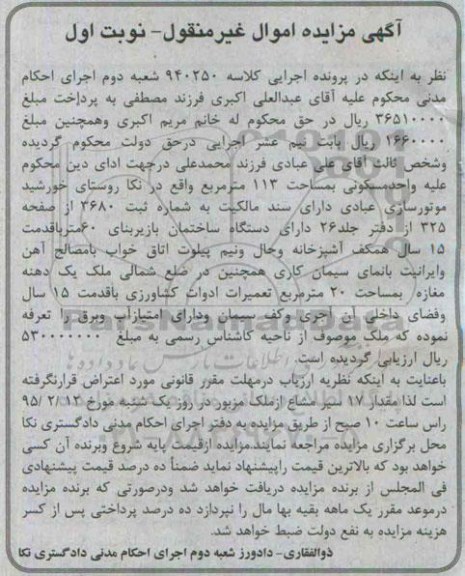 آگهی مزایده اموال غیرمنقول- نوبت اول
نظر به اینکه در پرونده اجرایی کلاسه ۹۴۰۲۵۰ شعبه دوم اجرای احکام
مدنی محکوم علیه آقای عبدالعلی اکبری فرزند مصطفی به پرداخت مبلغ
۳۶۵۱۰۰۰۰ ریال در حق محکوم له خانم مریم اکبری وهمچنین مبلغ
۱۶۶۰۰۰۰ ریال بابت نیم عشر اجرایی درحق دولت محکوم گردیده
وشخص ثالث آقای علی عبادی فرزند محمدعلی درجهت ادای دین محکوم
علیه واحدمسکونی بمساحت ۱۱۳ مترمربع واقع در نکا روستای خورشید
موتورسازی عبادی دارای سند مالکیت به شماره ثبت ۳۶۸۰ از صفحه
۳۲۵ از دفتر جلد۲۶ دارای دستگاه ساختمان بازیربنای ۶۰مترباقدمت
۱۵ سال همکف آشپزخانه وحال ونیم پیلوت اتاق خواب بامصالح آهن
وایرانیت بانمای سیمان کاری همچنین در ضلع شمالی ملک یک دهنه
مغازه بمساحت ۲۰ مترمربع تعمیرات ادوات کشاورزی باقدمت ۱۵ سال
وفضای داخلی آن آجری وکف سیمان ودارای امتیازآب وبرق را تعرفه
نموده که ملک موصوف از ناحیه کاشناس رسمی به مبلغ ۵۳۰۰۰۰۰۰۰
ریال ارزیابی گردیده است.
باعنایت به اینکه نظریه ارزیاب درمهلت مقرر قانونی مورد اعتراض قرارنگرفته
است لذا مقدار ۱۷ سیر مشاع ازملک مزبور در روز یک شنبه مورخ ۹۵/۲/۱۲
راس ساعت ۱۰ صبح از طریق مزایده به دفتر اجرای احکام مدنی دادگستری نکا
محل برگزاری مزایده مراجعه نمایند.مزایده ازقیمت پایه شروع وبرنده آن کسی
خواهد بود که بالاترین قیمت راپیشنهاد نماید ضمناً ده درصد قیمت پیشنهادی
فی المجلس از برنده مزایده دریافت خواهد شد ودرصورتی که برنده مزایده
درموعد مقرر یک ماهه بقیه بها مال را نپردازد ده درصد پرداختی پس از کسر
هزینه مزایده به نفع دولت ضبط خواهد شد.
ذوالفقاری- دادورز شعبه دوم اجرای احکام مدنی دادگستری نکا
ParsNamadData